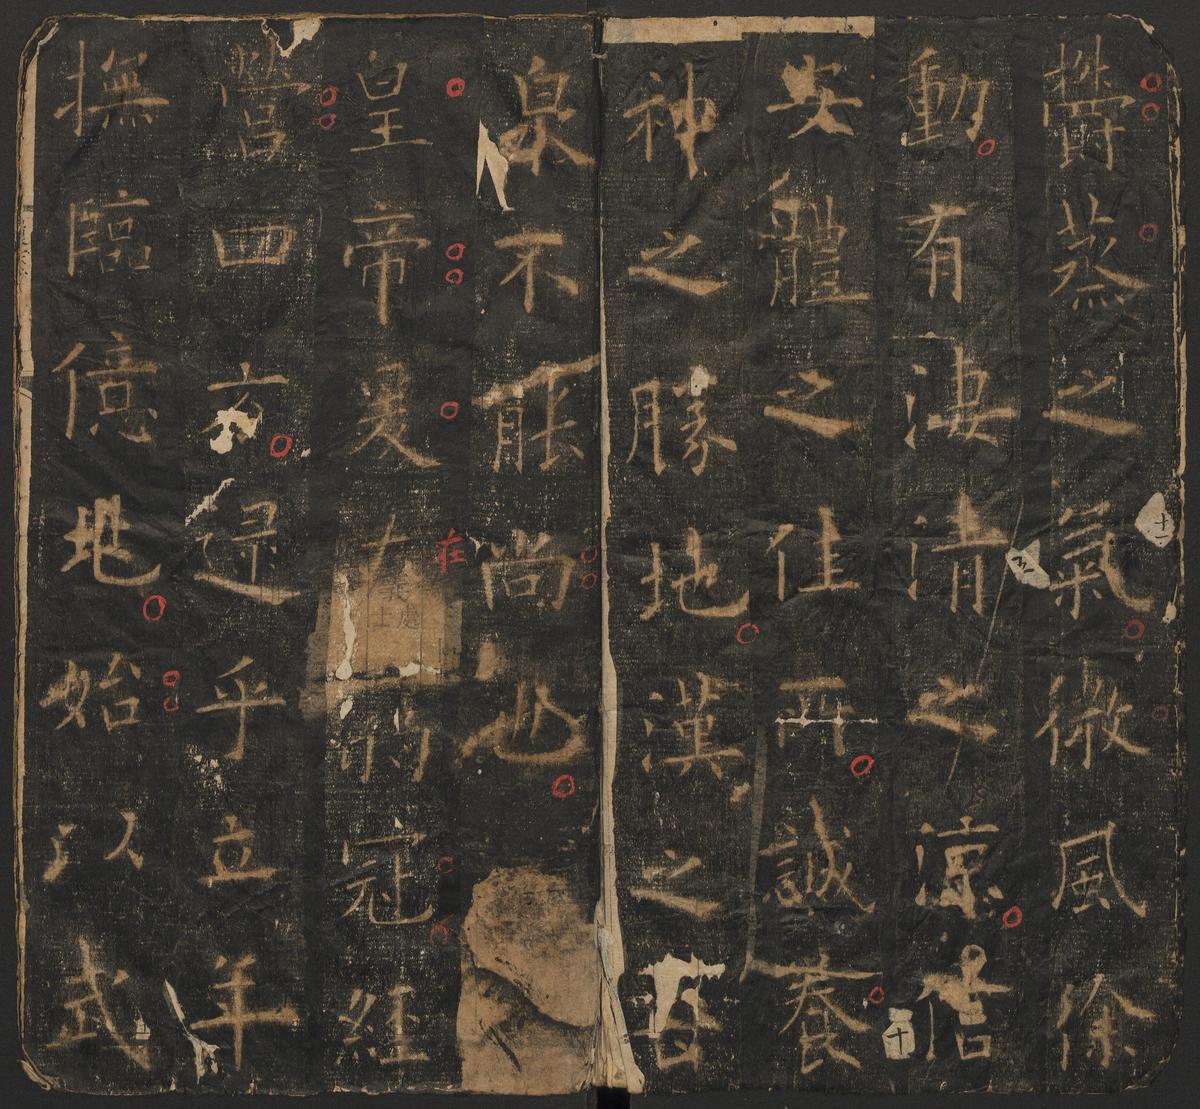 欝蒸之氣微風徐
動有淒清之涼信
安體之佳所誠養
神之勝地漢之甘
泉不能尚也
皇帝爰在弱冠經
營四方逮乎立年
撫臨億兆始以武
在
十一
十